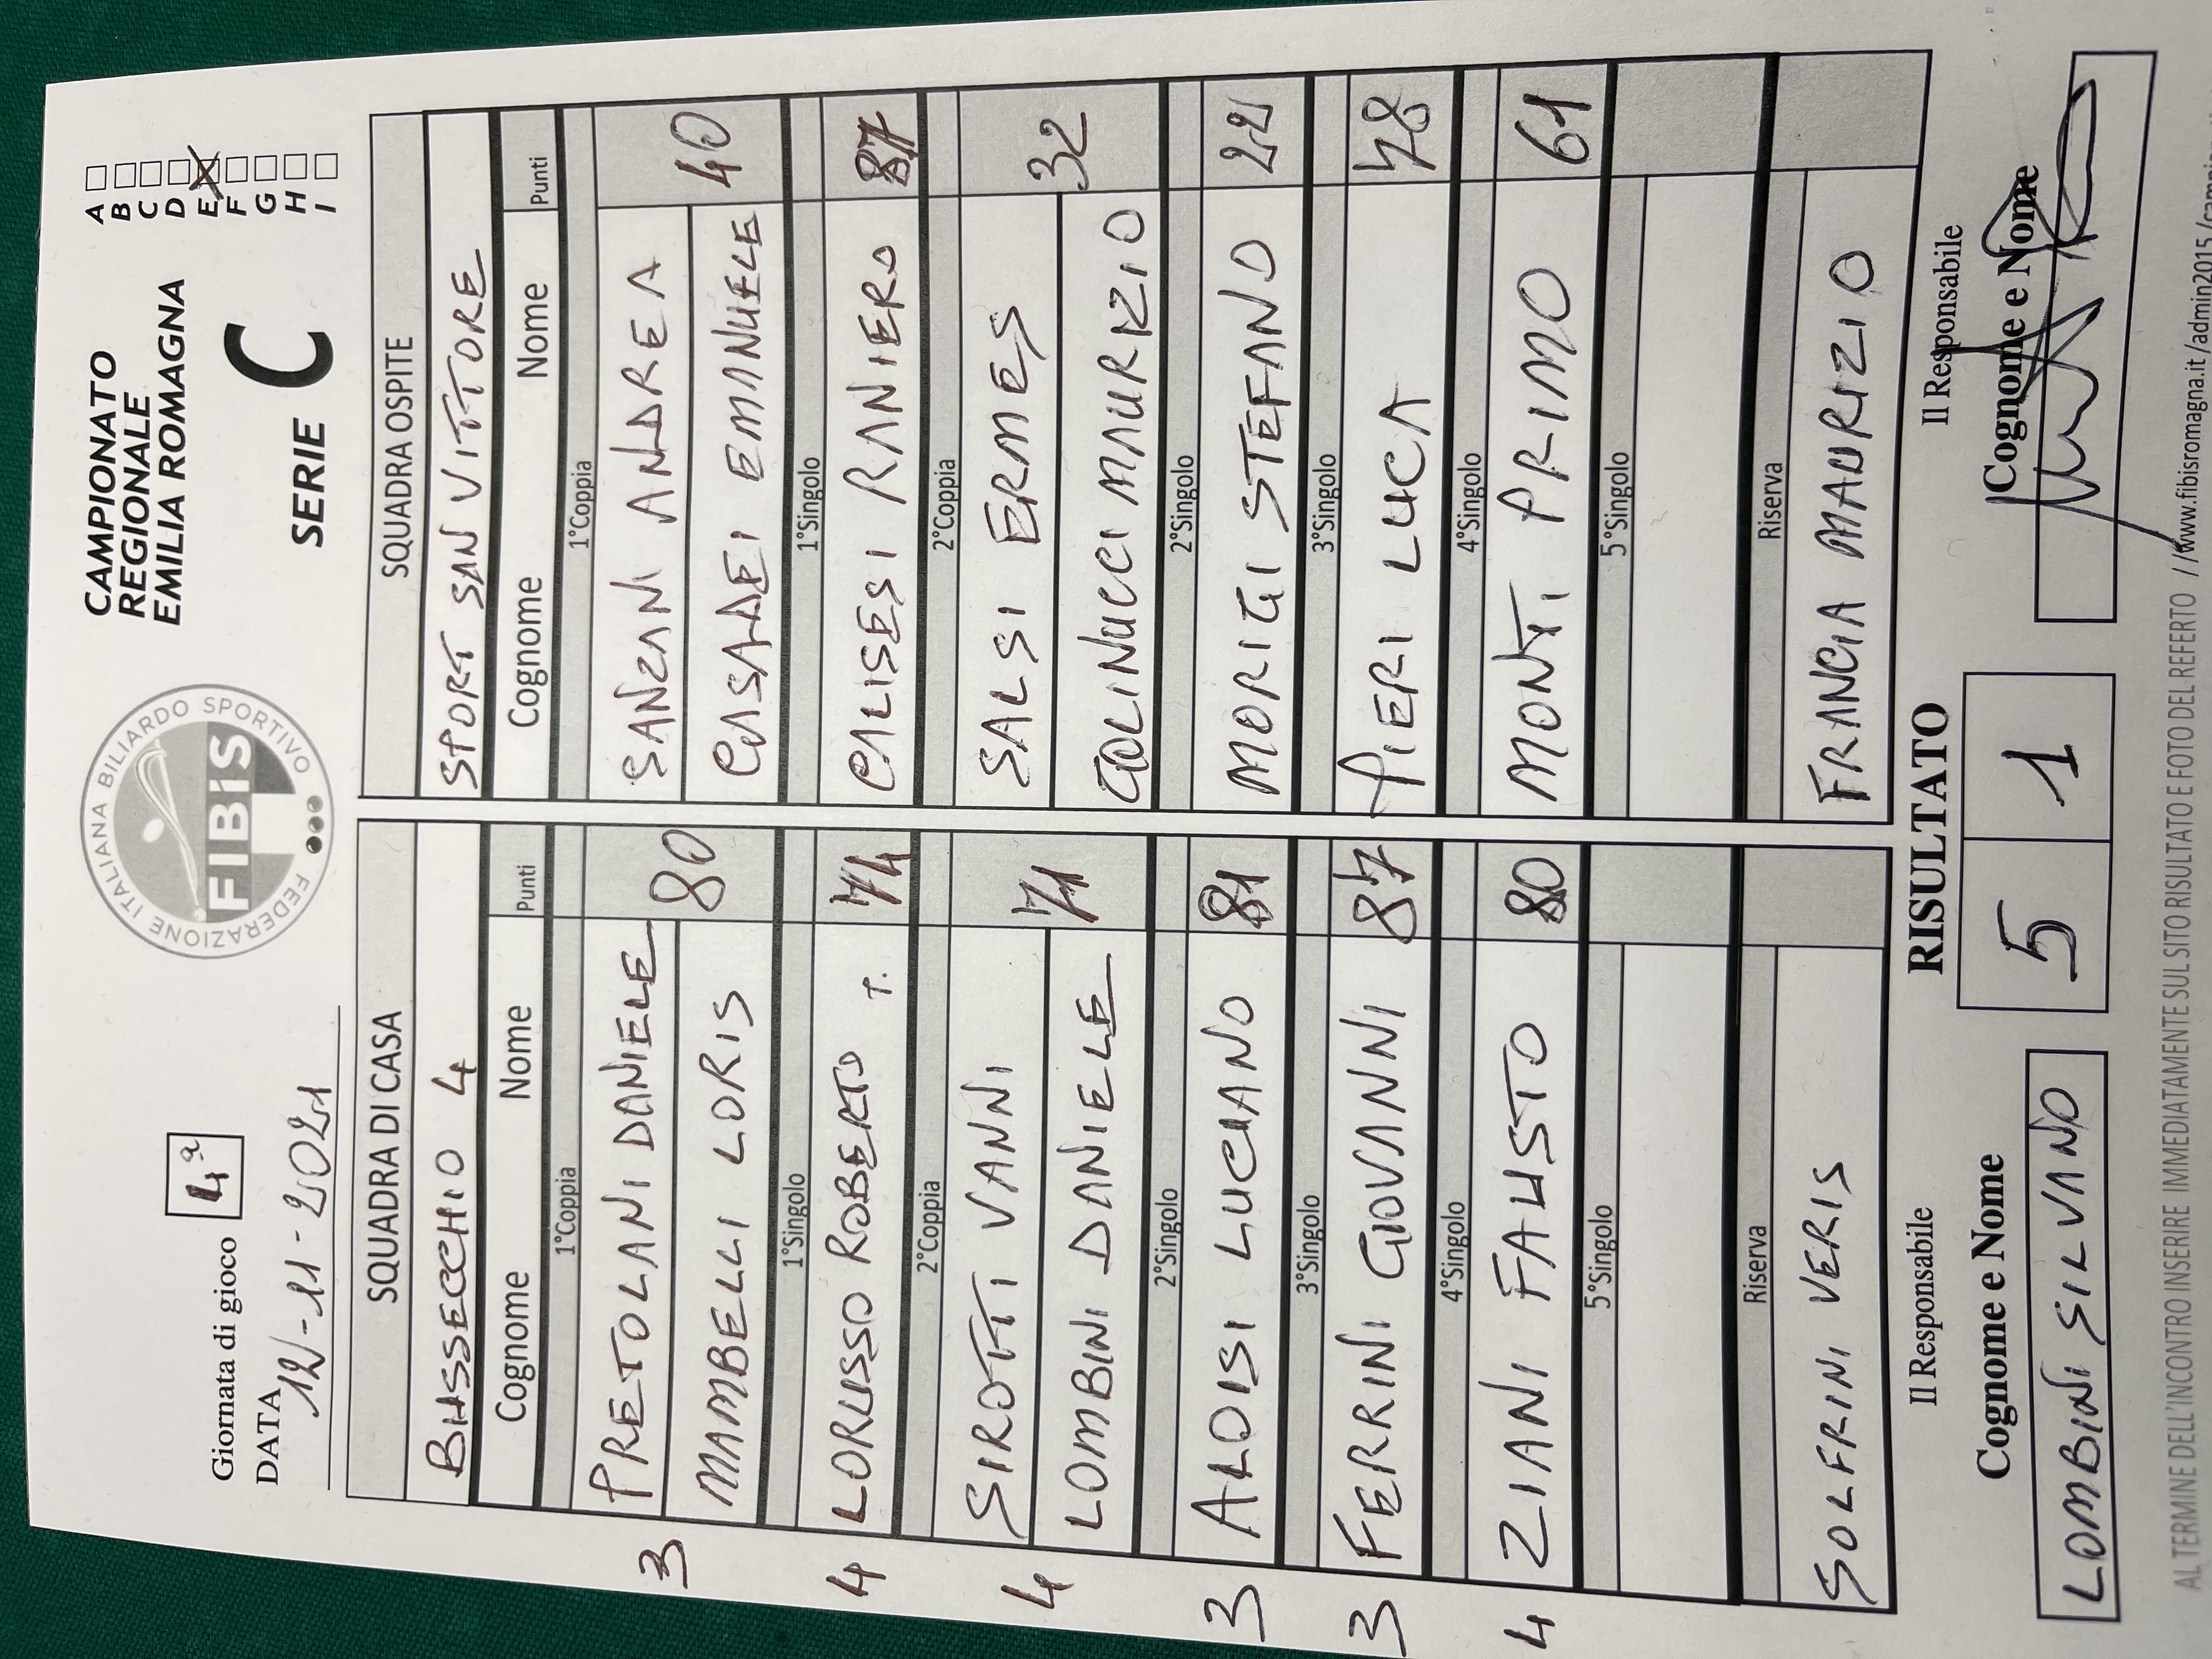 Giornata di gioco 4ª
DATA 12-11-2021
FEDERAZIONE ITALIANA BILIARDO SPORTIVO
FIBiS
CAMPIONATO
REGIONALE
EMILIA ROMAGNA
SERIE C
A
B
C
D
E X
F
G
H
I
SQUADRA DI CASA
BUSSECCHIO 4
Cognome Nome Punti
1°Coppia
3 PRETOLANI DANIELE
MAMBELLI LORIS 80
1°Singolo
4 LORUSSO ROBERTO T. 74
2°Coppia
4 SIROTTI VANNI
LOMBINI DANIELE 71
2°Singolo
3 ALOISI LUCIANO 81
3°Singolo
3 FERRINI GIOVANNI 87
4°Singolo
4 ZIANI FAUSTO 80
5°Singolo
Riserva
SOLFRINI VERIS
SQUADRA OSPITE
SPORT SAN VITTORE
Cognome Nome Punti
1°Coppia
SANZANI ANDREA
CASADEI EMANUELE 40
1°Singolo
CALISESI RANIERO 87
2°Coppia
SALSI ERMES
GOLINUCCI MAURIZIO 32
2°Singolo
MORIGI STEFANO 22
3°Singolo
PIERI LUCA 78
4°Singolo
MONTI PRIMO 61
5°Singolo
Riserva
FRANCIA MAURIZIO
Il Responsabile
Cognome e Nome
LOMBINI SILVANO
RISULTATO
5 1
Il Responsabile
Cognome e Nome
AL TERMINE DELL'INCONTRO INSERIRE IMMEDIATAMENTE SUL SITO RISULTATO E FOTO DEL REFERTO //www.fibisromagna.it/admin2015/